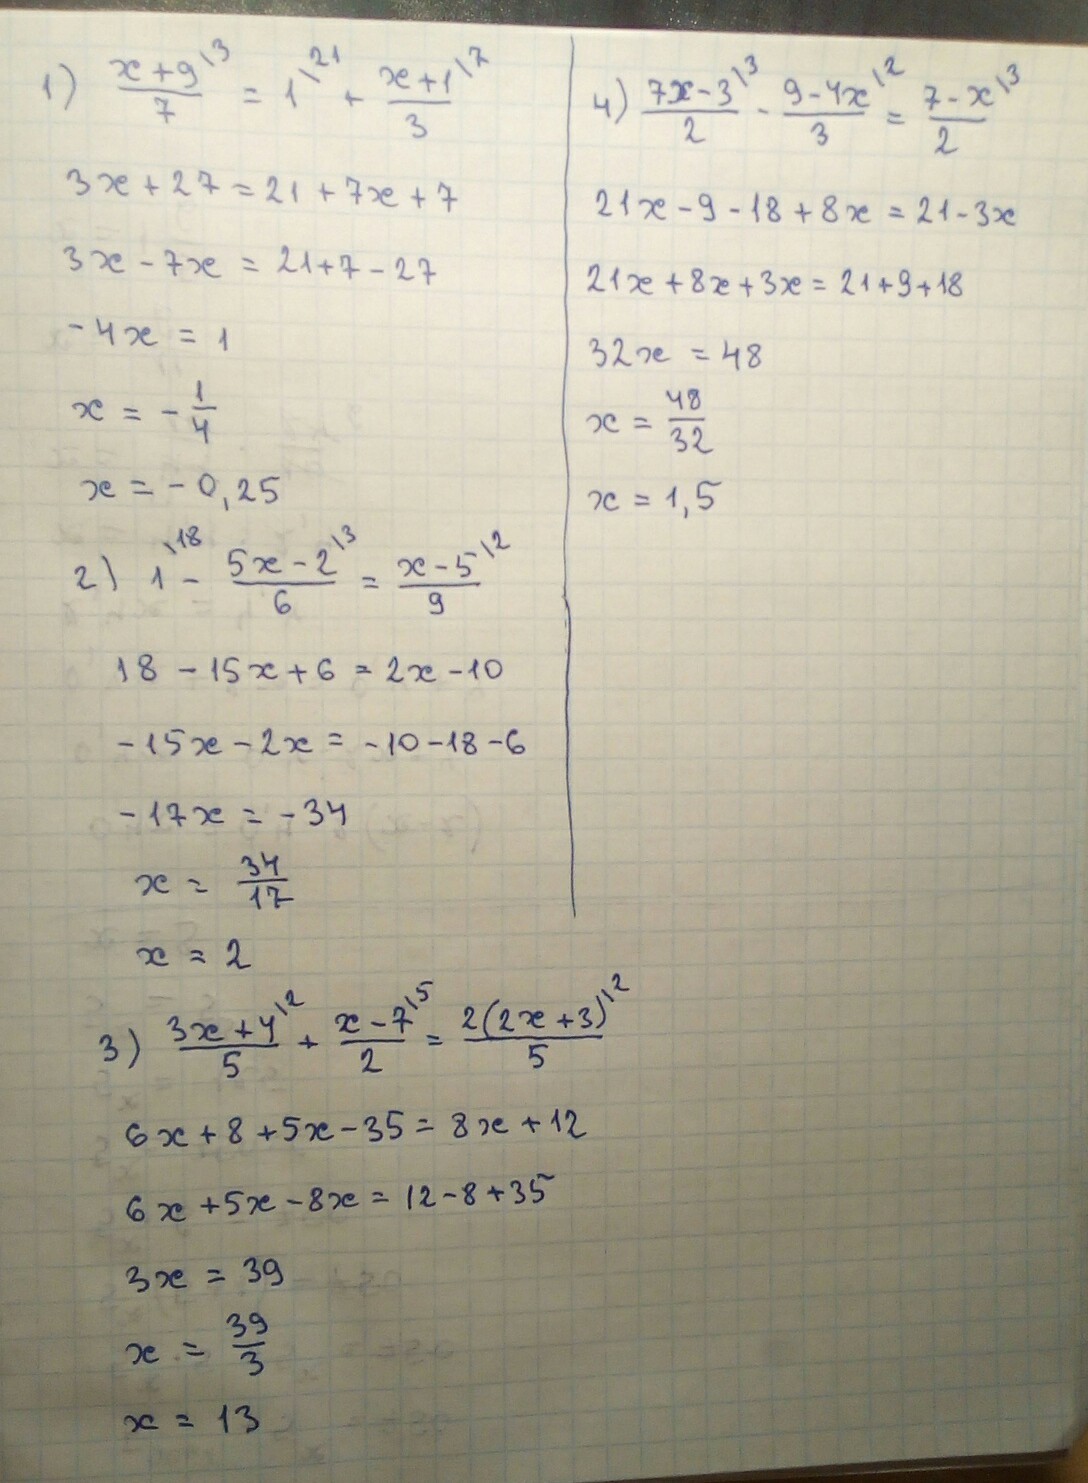 1) (x+9)/7 \3 = 1 \21 + (x+1)/3 \7
3x+27=21+7x+7
3x-7x=21+7-27
-4x=1
x=-1/4
x=-0,25
2) 1 \18 - (5x-2)/6 \3 = (x-5)/9 \2
18-15x+6=2x-10
-15x-2x=-10-18-6
-17x=-34
x=34/17
x=2
3) (3x+4)/5 \2 + (x-7)/2 \5 = 2(2x+3)/5 \2
6x+8+5x-35=8x+12
6x+5x-8x=12-8+35
3x=39
x=39/3
x=13
4) (7x-3)/2 \3 - (9-4x)/3 \2 = (7-x)/2 \3
21x-9-18+8x=21-3x
21x+8x+3x=21+9+18
32x=48
x=48/32
x=1,5